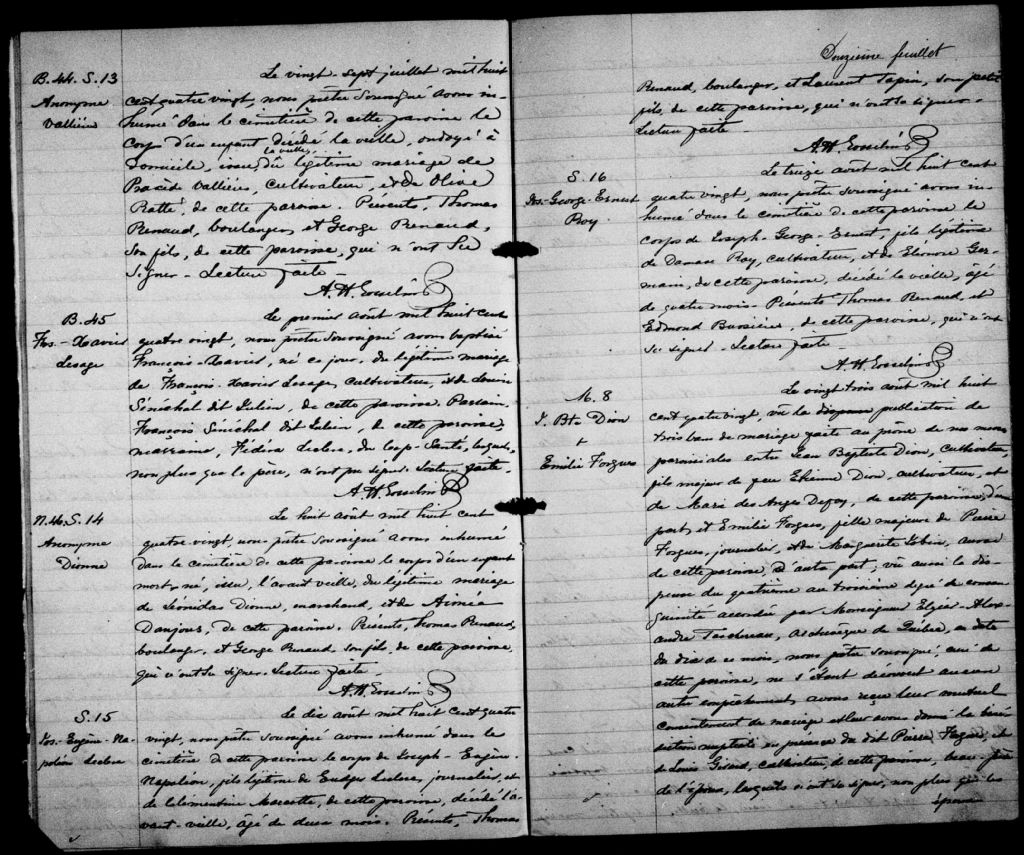 B. 44. S. 13
Anonyme
Vallière
Le vingt-sept juillet mil huit
cent quatre vingt, nous prêtre soussigné avons in-
humé dans le cimetière de cette paroisse le
corps d'un enfant décédé la veille, ondoyé à
domicile, issu, la veille, du légitime mariage de
Placide Vallières, cultivateur, et de Olive
Ratté, de cette paroisse. Présents, Thomas
Renaud, boulanger, et George Renaud,
son fils, de cette paroisse, qui n'ont su
signer. Lecture faite.
A. H. Gosselin
B. 45
Frs-Xavier
Lesage
Le premier août mil huit cent
quatre vingt, nous prêtre soussigné avons baptisé
François-Xavier, né ce jour, du légitime mariage
de François-Xavier Lesage, cultivateur, et de Louise
Sénéchal dit Julien, de cette paroisse. Parrain,
François Sénéchal dit Julien, de cette paroisse,
marraine, Fédora Leclerc, du Cap-Santé, lesquels,
non plus que le père, n'ont pu signer. Lecture faite.
A. H. Gosselin
N. 46. S. 14
Anonyme
Dionne
Le huit août mil huit cent
quatre vingt, nous prêtre soussigné avons inhumé
dans le cimetière de cette paroisse le corps d'un enfant
mort-né, issu, l'avant veille, du légitime mariage
de Léonidas Dionne, marchand, et de Aimée
Danjou, de cette paroisse. Présents, Thomas Renaud,
boulanger, et George Renaud son fils, de cette paroisse,
qui n'ont su signer. Lecture faite.
A. H. Gosselin
S. 15
Jos. Eugène-Na-
poléon Leclerc
Le dix août mil huit cent quatre
vingt, nous prêtre soussigné avons inhumé dans le
cimetière de cette paroisse le corps de Joseph-Eugène-
Napoléon, fils légitime de Leclerc, journalier, et
de Clémentine Marcotte, de cette paroisse, décédé l'a-
vant-veille, âgé de deux mois. Présents, Thomas
Douzième feuillet
Renaud, boulanger, et Laurent Papin, son petit
fils, de cette paroisse, qui n'ont su signer.
Lecture faite.
A. H. Gosselin
S. 16
Jos-George-Ernest
Roy
Le treize août mil huit cent
quatre vingt, nous prêtre soussigné avons in-
humé dans le cimetière de cette paroisse le
corps de Joseph-George-Ernest, fils légitime
de Damase Roy, cultivateur, et de Eléonore Ger-
main, de cette paroisse, décédé la veille, âgé
de quatre mois. Présents Thomas Renaud, et
Edmond, de cette paroisse, qui n'ont
su signer. Lecture faite.
A. H. Gosselin
M. 8
J. Bte Dion
+
Emilie Forgues
Le vingt trois août mil huit
cent quatre vingt, vu la publication de
trois bans de mariage faite au prône de nos messes
paroissiales entre Jean Baptiste Dion, cultivateur,
fils majeur de feu Etienne Dion, cultivateur, et
de Marie des Anges, de cette paroisse, d'une
part, et Emilie Forgues, fille majeure de Pierre
Forgues, journalier, et de Marguerite, aussi
de cette paroisse, d'autre part; vu aussi la dis-
pense du quatrième au troisième degré de consan-
guinité accordée par Monseigneur Elzéar-Alex-
andre Taschereau, Archevêque de Québec, en date
du dix de ce mois, nous prêtre soussigné, curé de
cette paroisse, ne s'étant découvert aucun
autre empêchement, avons reçu leur mutuel
consentement de mariage et leur avons donné la béné-
diction nuptiale en présence du dit Pierre Forgues, et
de Louis Girard, cultivateur, de cette paroisse, beau-frère
de l'époux, lesquels n'ont su signer, non plus que les
époux